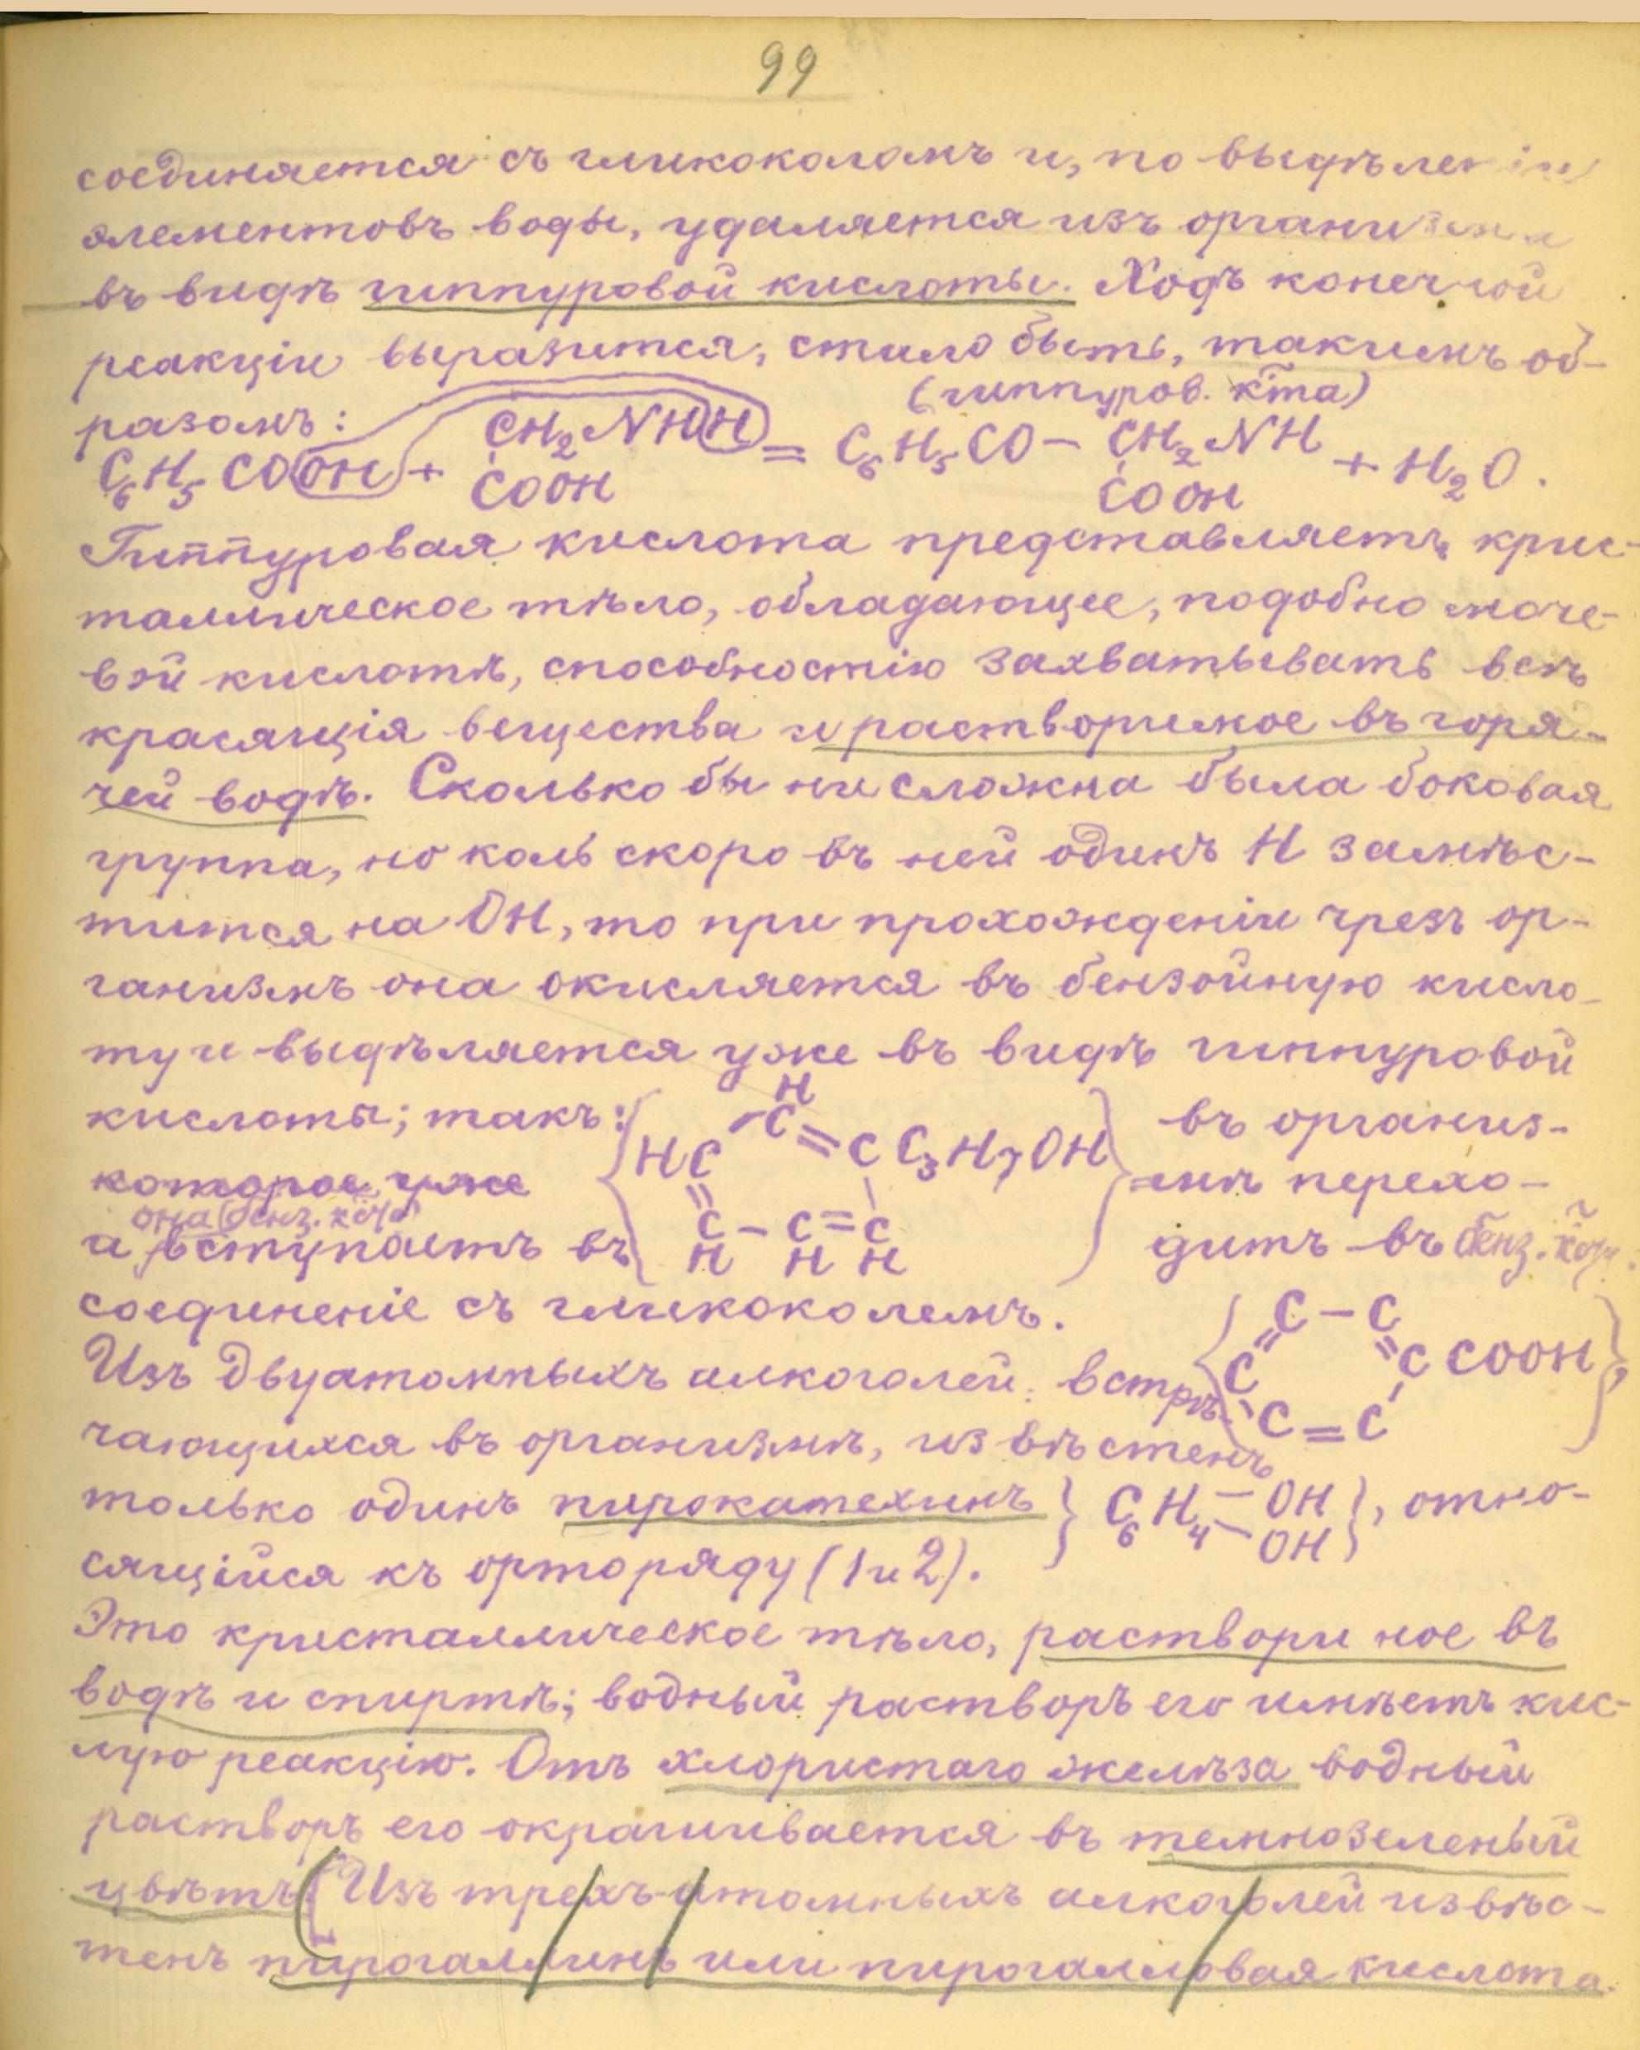 99
соединяется съ гликоколомъ и, по выдѣленіи
элементовъ воды, удаляется изъ организма
въ видѣ гиппуровой кислоты. Ходъ конечной
реакціи выразится, стало быть, такимъ об-
разомъ:
(гиппуров. к͠та)
C₆H₅COOH + CH₂NHH = C₆H₅CO – CH₂NH + H₂O.
COOH COOH
Гиппуровая кислота представляетъ крис-
таллическое тѣло, обладающее, подобно моче-
вой кислотѣ, способностію захватывать всѣ
красящія вещества и растворимое въ горя-
чей водѣ. Сколько бы ни сложна была боковая
группа, но коль скоро въ ней одинъ H замѣс-
тится на OH, то при прохожденіи чрезъ ор-
ганизмъ она окисляется въ бензойную кисло-
ту и выдѣляется уже въ видѣ гиппуровой
кислоты; такъ: { HC – CH = C C₃H₇OH } въ организ-
которое уже мѣ перехо-
она (бенз. к͠та)
а вступаетъ въ C – C = C дитъ въ бенз. к͠ту
H H H
соединеніе съ гликоколемъ.
{ C – C
C C COOH },
C = C
Изъ двуатомныхъ алкоголей, встрѣ-
чающихся въ организмѣ, извѣстенъ
только одинъ пирокатехинъ } C₆H₄ – OH }, отно-
– OH
сящійся къ орторяду (1 и 2).
Это кристаллическое тѣло, растворимое въ
водѣ и спиртѣ; водный растворъ его имѣетъ кис-
лую реакцію. Отъ хлористаго желѣза водный
растворъ его окрашивается въ темнозеленый
цвѣтъ. [Изъ трехъ-атомныхъ алкоголей извѣс-
тенъ пирогаллинъ или пирогалловая кислота.